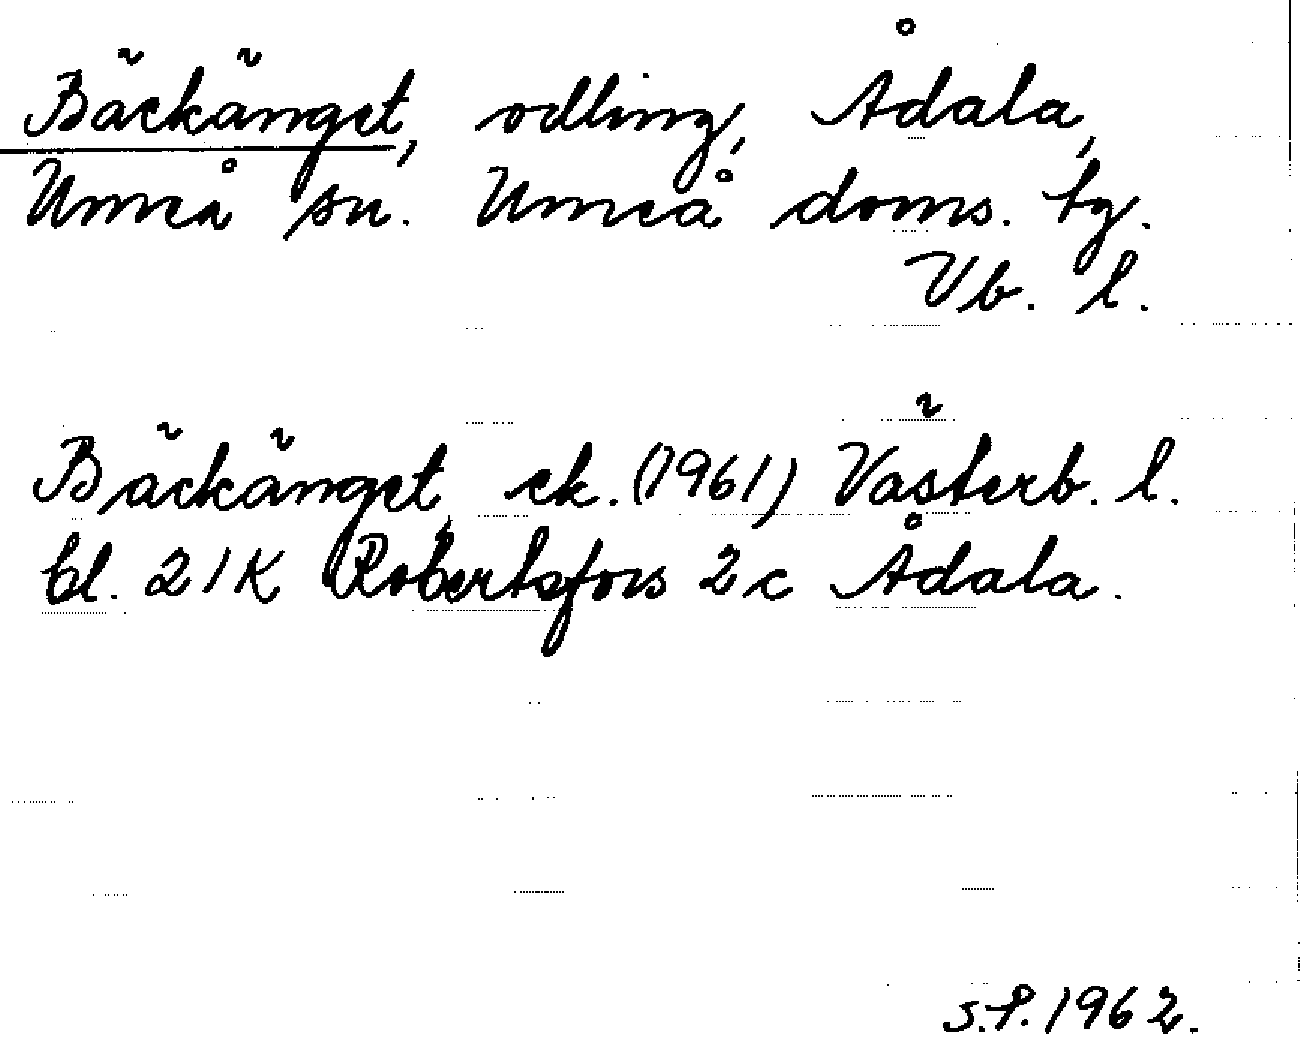 Bäckänget, odling, Ådala,
Umeå sn. Umeå doms. tg.
Vb. l.
Bäckänget, ek. (1961) Västerb. l.
bl. 21K Robertsfors 2c Ådala.
S.P. 1962.